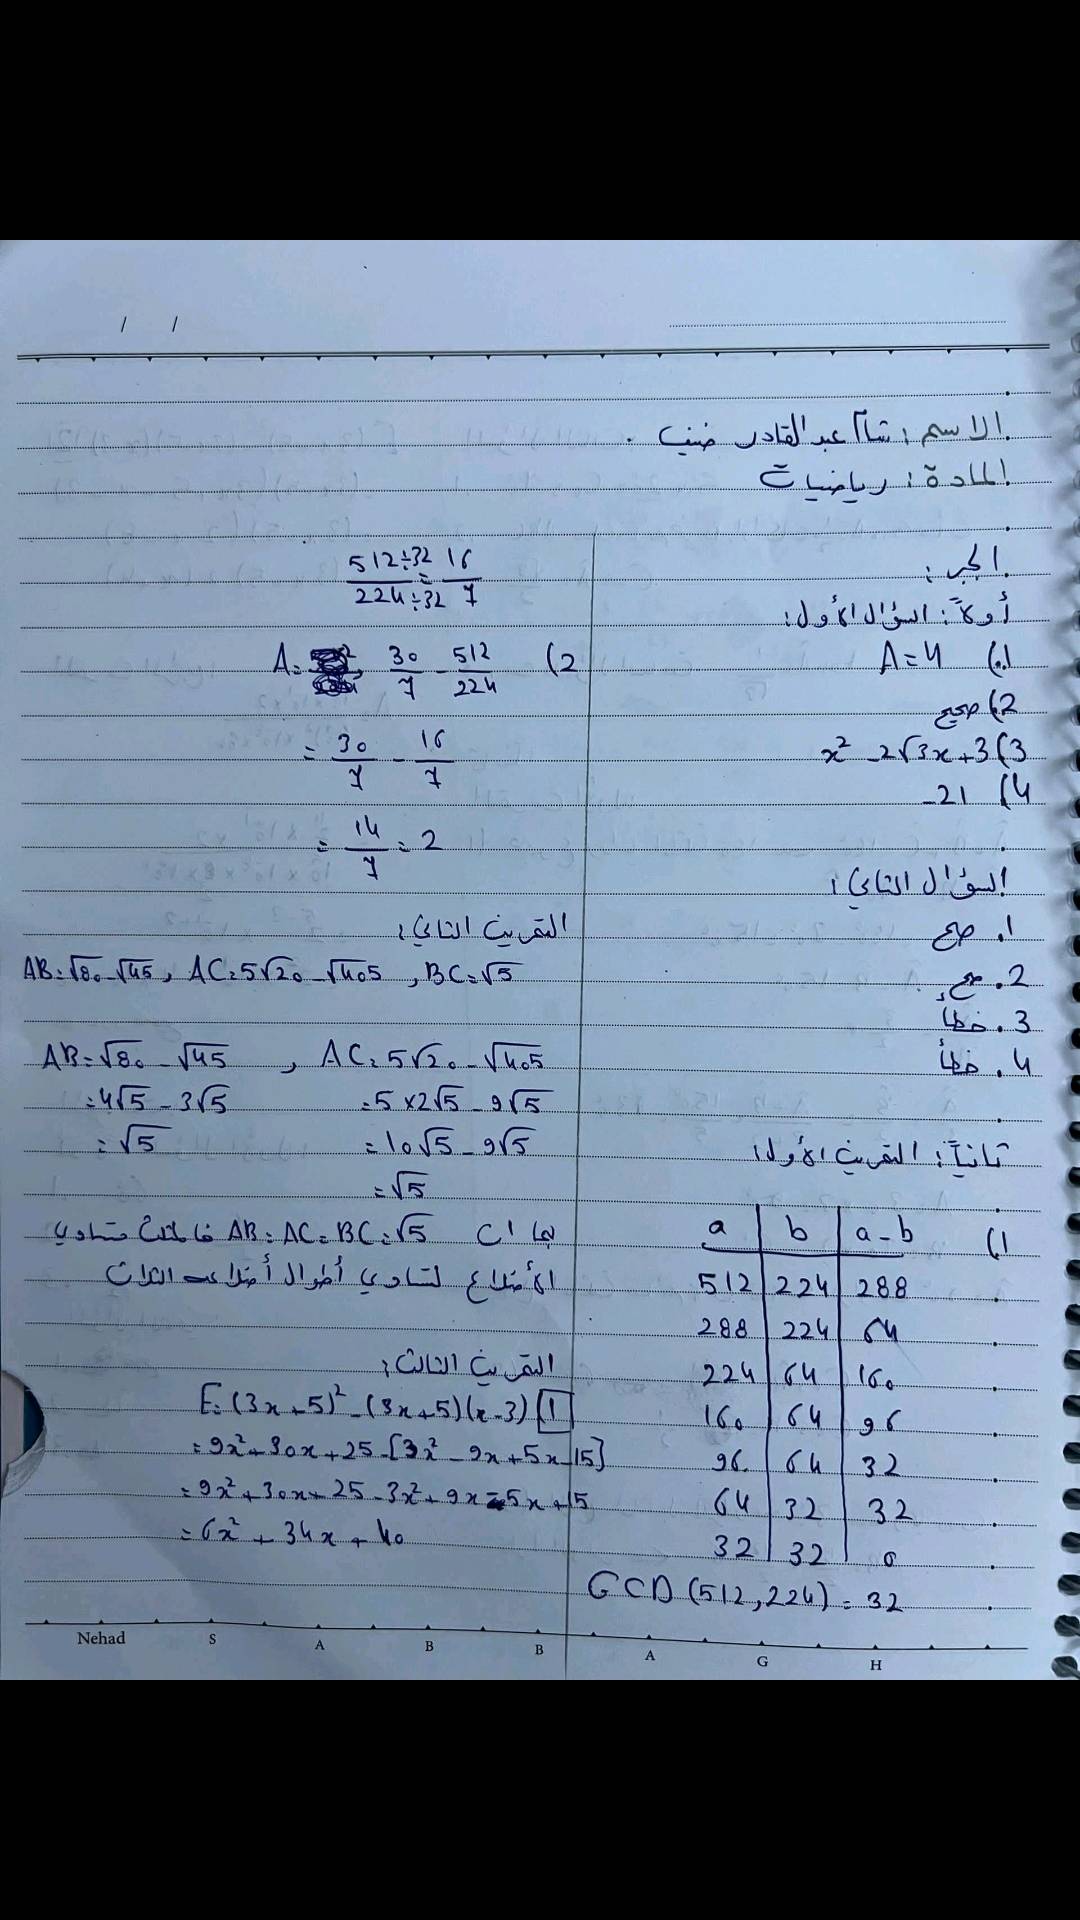 / /
الاسم: شام عبد القادر
المادة: رياضيات
الجبر:
أولاً: السؤال الأول:
1) A=4
2) صحيح
3) x² - 2√3x + 3
4) -21
السؤال الثاني:
1. صح
2. صح
3. خطأ
4. خطأ
ثانياً: التمرين الأول:
1) a | b | a - b
512 | 224 | 288
288 | 224 | 64
224 | 64 | 160
160 | 64 | 96
96 | 64 | 32
64 | 32 | 32
32 | 32 | 0
GCD (512, 224) = 32
512÷32 / 224÷32 = 16/7
2) A = 30/7 - 512/224
= 30/7 - 16/7
= 14/7 = 2
التمرين الثاني:
AB=√80-√45, AC=5√20-√405, BC=√5
AB=√80-√45 , AC=5√20-√405
=4√5-3√5 =5×2√5-9√5
=√5 =10√5-9√5
=√5
بما أن AB=AC=BC=√5 فالمثلث متساوي
الأضلاع لتساوي أطوال أضلاعه الثلاث
التمرين الثالث:
1 E=(3x+5)²-(3x+5)(x-3)
=9x²+30x+25-[3x²-9x+5x-15]
=9x²+30x+25-3x²+9x-5x+15
=6x²+34x+40
Nehad S A B B A G H